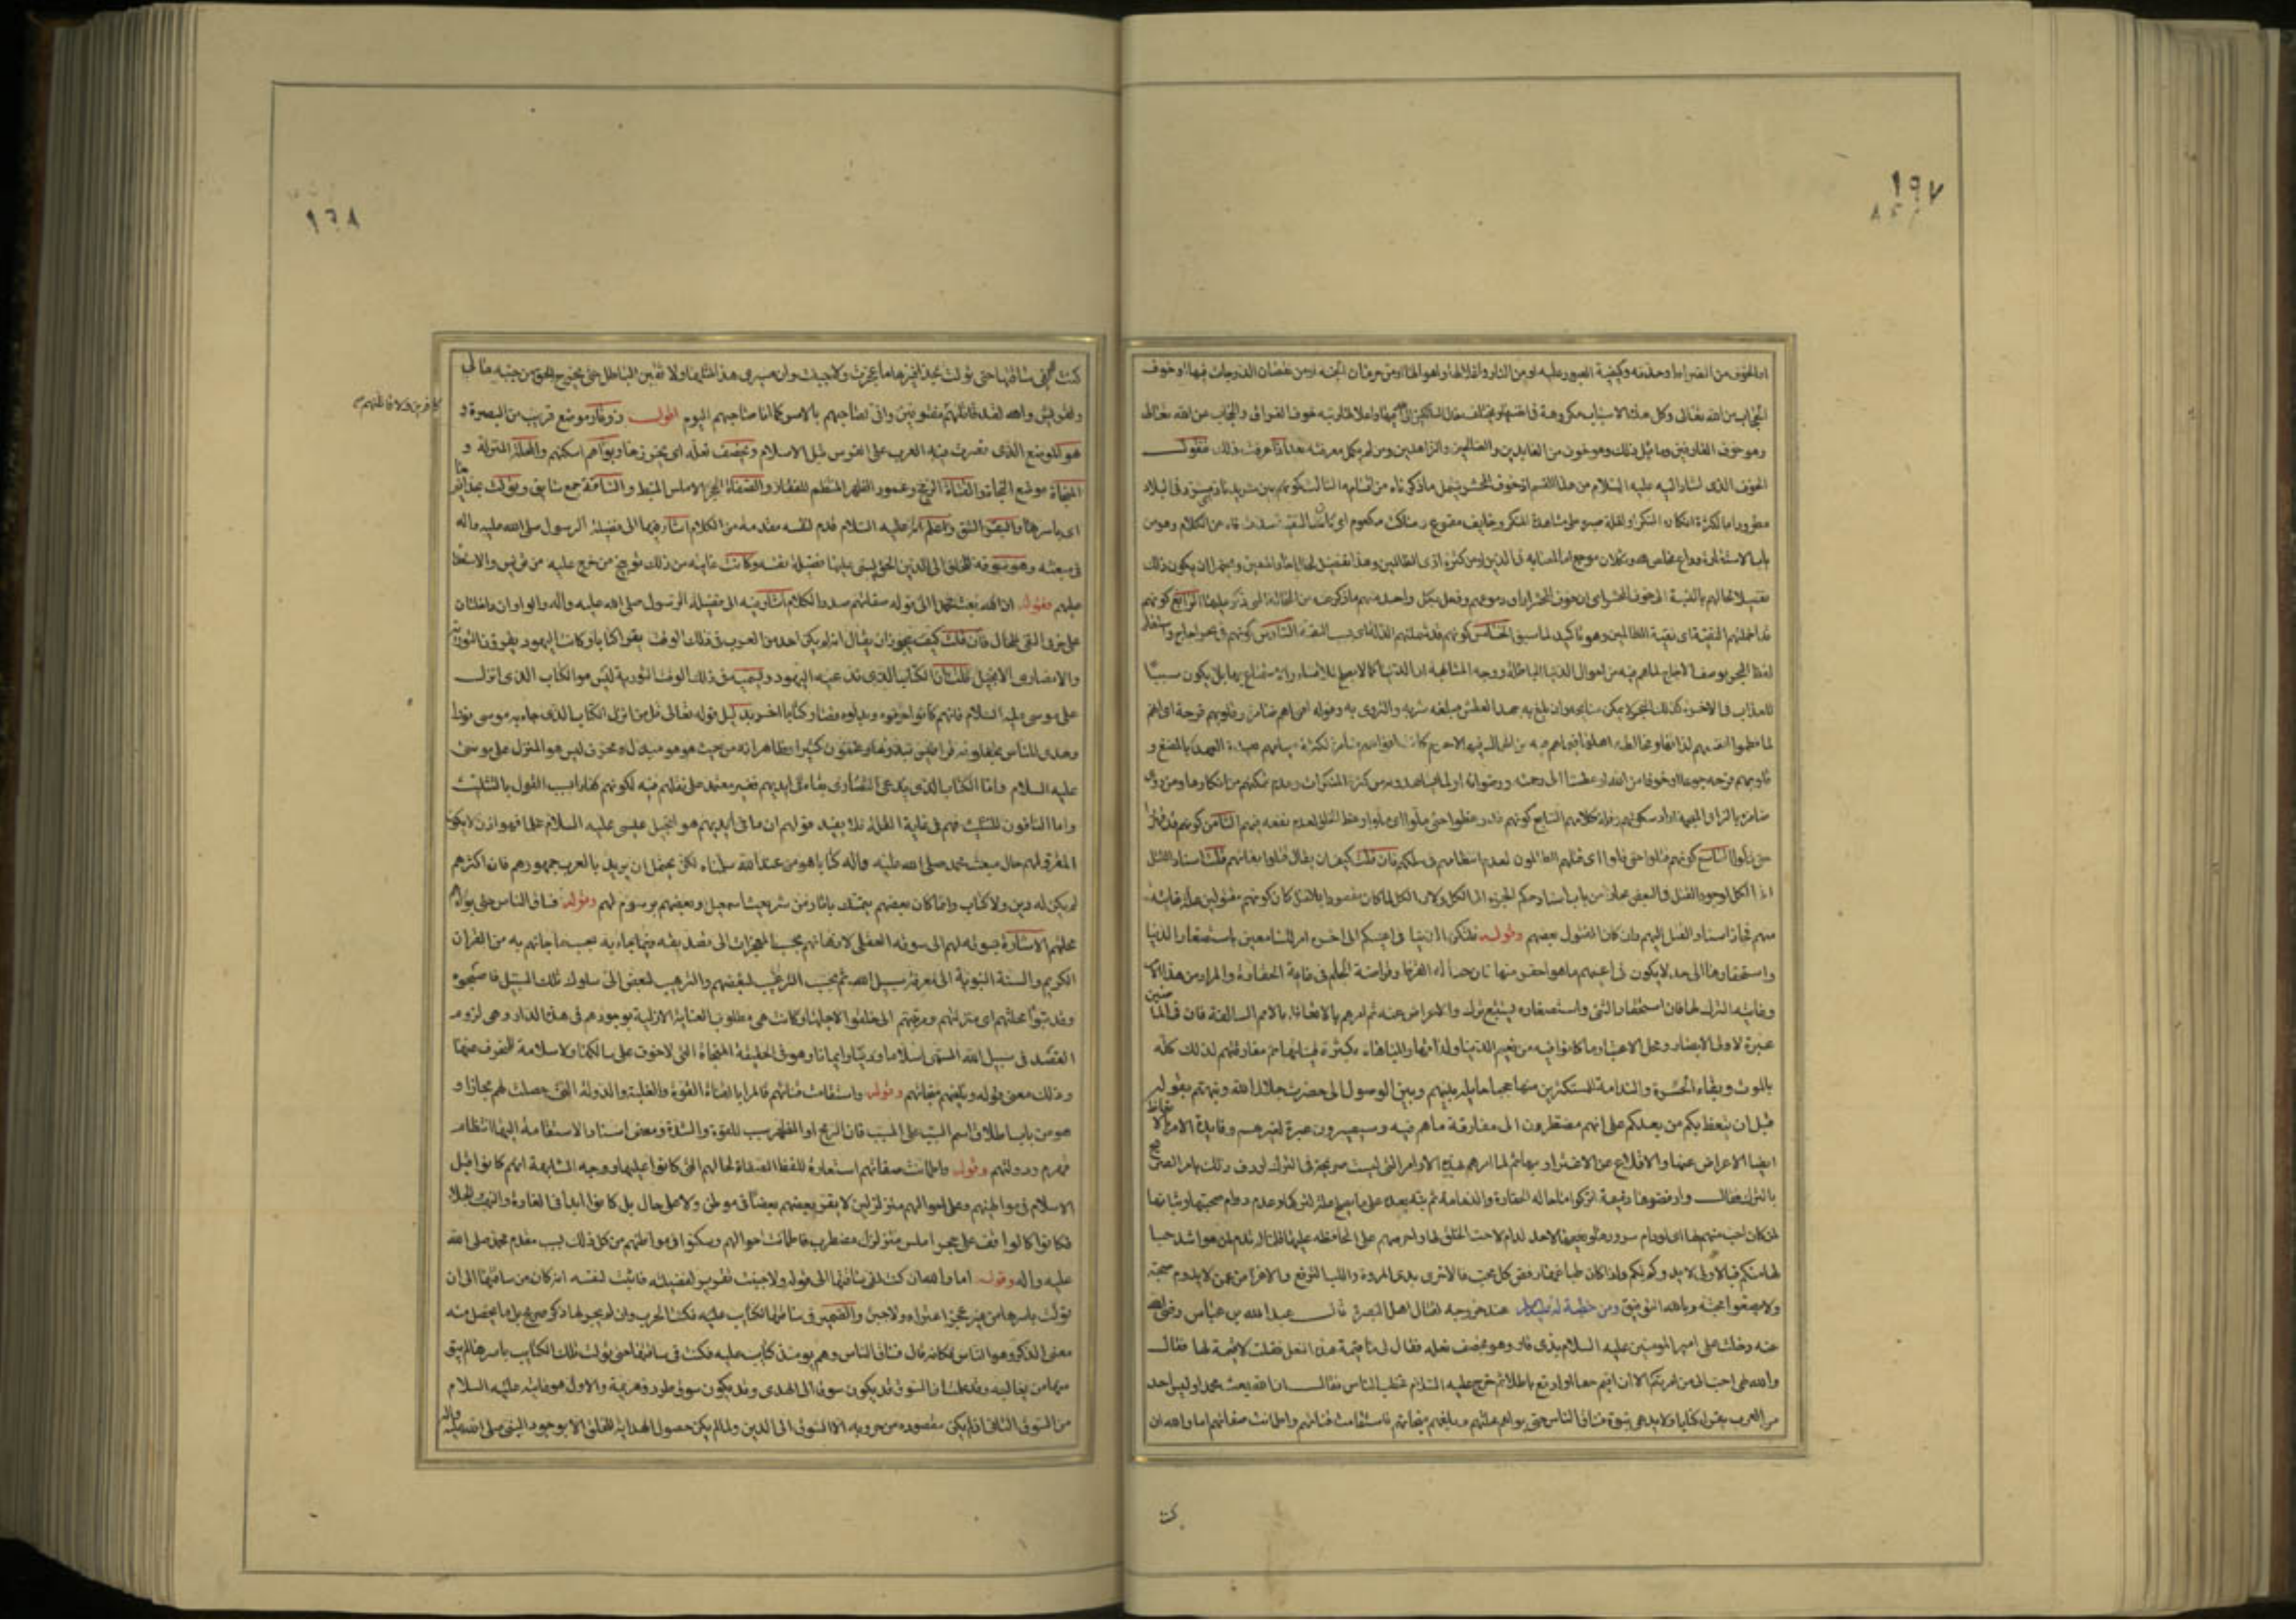 ١٩٧
اما الخوف من الصراط وحدته وكيفية العبور عليه او من النار واغلالها واهوالها او من حرمان الجنة او من نقصان الدرجات فيها او خوف
الحجاب من الله تعالى وكل هذه الاسباب مكروهة في انفسها ويختلف حال السالكين الى الله فيها واعلاها رتبة خوف الفراق والحجاب عن الله تعالى
وهو خوف العارفين وما قبل ذلك وهو خوف من العابدين والصالحين والزاهدين ومن لم يكمل معرفته بعد اذا عرفت ذلك فنقول
الخوف الذى اشار اليه عليه السلام من هذا القسم اذ خوف المحشر يشمل ما ذكرناه من اقسامه الثالث كونهم بين شريد ناد
مطرود اما لكثرة انكاره المنكر او لقلة صبره على مشاهدة المنكر وخايف مقموع وساكت مكعوم اى كان التقية سدت فاه عن الكلام وهو من
باب الاستعارة وداع مخلص لله وثكلان موجع اما لمصابه في الدين او من كثرة اذى الظالمين وهذا تفصيل لحال احاد المتقين ويحتمل ان يكون ذلك
تفصيلا لحالهم بالنسبة الى خوف المحشر اى ان خوف المحشر اراق دموعهم وفعل بكل واحد منهم ما ذكر عنه من الحالة التى ذكر عليها الرابع كونهم
قد اخملتهم التقية اى تقية الظالمين وهو تاكيد لما سبق الخامس كونهم قد شملتهم الذلة اى بسبب التقية السادس كونهم في بحر اجاج واستعار
لفظ البحر بوصف الاجاج لما هم فيه من احوال الدنيا الباطلة ووجه المشابهة ان الدنيا كما لا يصلح للاقتناء والاستمتاع بها بل يكون سببا
للعذاب في الاخرة كذلك البحر لا يمكن سابحه وان بلغ به جهد العطش مبلغه شربه والتروى به وقوله افواههم ضامزة وقلوبهم قرحة اى انهم
وقلوبهم قرحة جوعا او خوفا من الله او عطشا الى رحمته ورضوانه او لما يشاهدونه من كثرة المنكرات وعدم تمكنهم من انكارها ومن روى
السابع كونهم قد وعظوا حتى ملوا اى ملوا وعظ الخلق لعدم نفعه فيهم الثامن كونهم قد قهروا
حتى ذلوا التاسع كونهم قتلوا حتى قلوا اى قتلهم الظالمون لعدم انتظامهم في سلكهم فان قلت كيف ان يقال قتلوا مع بقائهم قلت اسناد القتل
الى الكل لوجود القتل في البعض مجازا من باب اسناد حكم الجزء الى الكل ولان الكل لما كان مقصودا بالقتل كان كونهم مقتولين علة غائية
منهم فجاز اسناد القتل اليهم وان كان المقتول بعضهم وقوله فلتكن الدنيا في اعينكم الى اخره امر للسامعين باستصغار الدنيا
واستحقارها الى حد لا يكون في اعينهم ما هو احقر منها فان حثالة القرظ وقراضة الجلم في غاية الحقارة والمراد من هذا الامر
وغايته الترك لها فان استحقار الشئ واستصغاره يستتبع تركه والاعراض عنه ثم امرهم بالاتعاظ بالامم السالفة فان فيها
عبرة لاولى الابصار ومحل الاعتبار ما كانوا فيه من نعيم الدنيا ولذاتها والمباهاة بكثرة قيناتها ثم مفارقتهم لذلك كله
بالموت وبقاء الحسرة والندامة للمستكثرين منها حجبا حايلة بينهم وبين الوصول الى حضرت جلال الله ونبههم بقوله
قبل ان يتعظ بكم من بعدكم على انهم مضطرون الى مفارقة ما هم فيه وسيصيرون عبرة لغيرهم وفايدة الامر
ايضا الاعراض عنها والاقلاع عن الاغترار بها ثم لما امرهم بهذه الاوامر التى ليست صريحة في الترك اردف ذلك بامر صريح
بالترك فقال وارفضوها ذميمة اتركوا ما حاله الحقارة والذمامة ثم نبه بعده على ما يصلح علة لتركها وعدم دوام صحبتها وثباتها
لمن كان احب منهم لها اى لو دام سرورها ونعيمها لاحد لدام لاحب الخلق لها واحرصهم على المحافظة عليها فلما لم تدم لمن هو اشد حبا
لها منكم فبالاولى لا يدوم لكم ولذا كان طباعها رفض كل محب
ولا يصفوا محبته وبالله التوفيق ومن خطبة له عليه السلام عند خروجه لقتال اهل البصرة قال عبد الله بن عباس رضى الله
عنه دخلت على امير المومنين عليه السلام بذى قار وهو يخصف نعله فقال لى ما قيمة هذه النعل فقلت لا قيمة لها فقال
والله لهى احب الى من امرتكم الا ان اقيم حقا او ادفع باطلا ثم خرج عليه السلام فخطب الناس فقال ان الله بعث محمدا وليس احد
من العرب يقرء كتابا ولا يدعى نبوة فساق الناس حتى بواهم محلتهم وبلغهم منجاتهم فاستقامت قناتهم واطمانت صفاتهم اما والله ان
كنت
١٦٨
كنت لفى ساقتها حتى تولت بحذافيرها ما عجزت ولا جبنت وان مسيرى هذا لمثلها ولانقبن الباطل حتى يخرج الحق من جنبه مالى
ولقريش والله لقد قاتلتهم مفتونين وانى لصاحبهم بالامس كما انا صاحبهم اليوم اقول ذوقار موضع قريب من البصرة و
كافرين ولاقاتلنهم
هو الموضع الذى نصرت فيه العرب على الفرس قبل الاسلام ويخصف نعله اى يخرزها وبوأهم اسكنهم والمحلة المنزلة و
المنجاة موضع النجاة والقناة الرمح وعمود الظهر المنتظم للفقار والصفاة الحجر الاملس المنبسط والساقة جمع سايق وتولت بحذافيرها
اى باسرها والبقر الشق واعلم انه عليه السلام قدم لنفسه مقدمة من الكلام اشار فيها الى فضيلة الرسول صلى الله عليه واله
في بعثه وهو سوقه للخلق الى الدين الحق ليبنى عليها فضيلة نفسه وكانت غايته من ذلك توبيخ من خرج عليه من قريش والاستعداد
عليهم فقوله ان الله بعث محمدا الى قوله صفاتهم صدر الكلام اشار فيه الى فضيلة الرسول صلى الله عليه واله والواوان داخلتان
على حرفى النفى للحال فان قلت كيف يجوز ان يقال انه لم يكن احد من العرب في ذلك الوقت يقرأ كتابا وكانت اليهود يقرؤن التورية
والنصارى الانجيل قلت ان الكتاب الذى تدعيه اليهود وتسميه في ذلك الوقت التورية ليس هو الكتاب الذى انزل
على موسى عليه السلام فانهم كانوا حرفوه وبدلوه فصار كتابا اخر بدليل قوله تعالى قل من انزل الكتاب الذى جاء به موسى نورا
وهدى للناس تجعلونه قراطيس تبدونها وتخفون كثيرا وظاهر انه من حيث هو هو مبدل ومحرف ليس هو المنزل على موسى
عليه السلام واما الكتاب الذى يدعى النصارى بقاءه في ايديهم فغير معتمد على نقلهم فيه لكونهم كفارا بسبب القول بالتثليث
واما النافون للتثليث فهم في غاية القلة فلا يفيد قولهم ان ما في ايديهم هو انجيل عيسى عليه السلام علما فهو اذن لا يكون
المقرو لهم حال مبعث محمد صلى الله عليه واله كتابا هو من عند الله سلمناه لكن يحتمل ان يريد بالعرب جمهورهم فان اكثرهم
لم يكن له دين ولا كتاب وانما كان بعضهم يتمسك باثار من شريعة اسمعيل وبعضهم برسوم لهم وقوله فساق الناس حتى بوأهم
محلتهم الاشارة بسوقه لهم الى سوقه العقلى لاذهانهم بحسب المعجزات الى تصديقه فيما جاء به بحسب ما جائهم به من القران
الكريم والسنة النبوية الى معرفة سبيل الله ثم بحسب الترغيب لبعضهم والترهيب لبعض الى سلوك تلك السبيل فاصبحوا
وقد تبوأ محلتهم اى منزلتهم ومرتبتهم التى خلقوا لاجلها وكانت هى مطلوب العناية الازلية بوجودهم في هذه الدار وهى لزوم
القصد في سبيل الله المسمى اسلاما ودينا وايمانا وهو في الحقيقة المنجاة التى لا خوف على سالكها ولا سلامة للمنحرف عنها
وذلك معنى قوله وبلغهم منجاتهم وقوله واستقامت قناتهم فالمراد بالقناة القوة والغلبة والدولة التى حصلت لهم مجازا و
هو من باب اطلاق اسم السبب على المسبب فان الرمح او الظهر سبب للقوة والشدة ومعنى اسناد الاستقامة اليها انتظام
قهرهم ودولتهم وقوله واطمانت صفاتهم استعارة للفظ الصفاة لحالهم التى كانوا عليها ووجه المشابهة انهم كانوا قبل
الاسلام في مواطنهم وعلى احوالهم متزلزلين لا يقر بعضهم بعضا في موطن ولا على حال بل كانوا ابدا في الغارة والنهب والجلاء
فكانوا كالواقف على حجر املس متزلزل مضطرب فاطمانت احوالهم وسكنوا في مواطنهم من كل ذلك بسبب مقدم محمد صلى الله
عليه واله وقوله اما والله ان كنت لفى ساقتها الى قوله ولا جبنت تقرير لفضيلته فاثبت لنفسه انه كان من ساقتها الى ان
تولت باسرها من غير عجز اعتراه ولا جبن والضمير في ساقتها لكتايب الحرب وان لم يجر لها ذكر صريح بل ما يحصل منه
معنى الذكر وهو الناس فكانه قال فساق الناس وهم يومئذ كتايب عليه فكنت في ساقتها حتى تولت تلك الكتايب باسرها لم يبق
منها من يغالبه وقد علمت ان السوق قد يكون سوق الى الهدى وقد يكون سوق طرد وهزيمة والاول هو غايته عليه السلام
من السوق الثانى اذ لم يكن مقصوده من حروبه الا السوق الى الدين ولما لم يكن حصول الهداية للخلق الا بوجود النبى صلى الله عليه واله